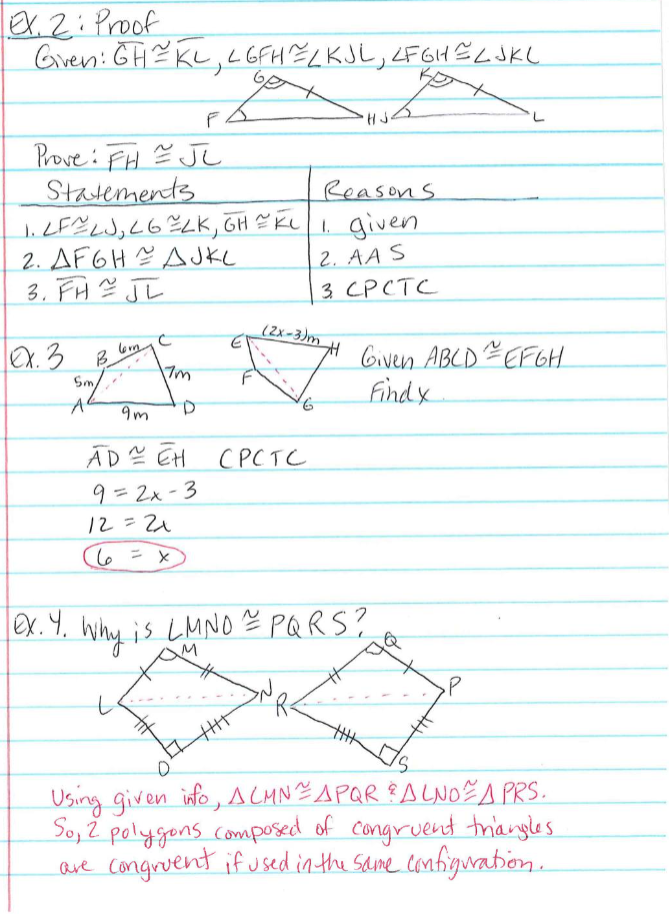 Ex. 2: Proof
Given: GH ≅ KL, ∠GFH ≅ ∠KJL, ∠FGH ≅ ∠JKL
G K
F H J L
Prove: FH ≅ JL
Statements Reasons
1. ∠F≅∠J, ∠G≅∠K, GH ≅ KL 1. given
2. △FGH ≅ △JKL 2. AAS
3. FH ≅ JL 3. CPCTC
Ex. 3 B 6m C E (2x-3)m H Given ABCD ≅ EFGH
5m 7m F Find x
A 9m D G
AD ≅ EH CPCTC
9 = 2x - 3
12 = 2x
6 = x
Ex. 4. Why is LMNO ≅ PQRS?
M Q
L N R P
O S
Using given info, △LMN ≅ △PQR & △LNO ≅ △PRS.
So, 2 polygons composed of congruent triangles
are congruent if used in the same configuration.